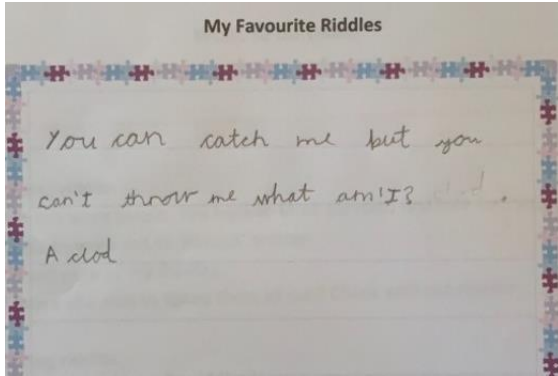 My Favourite Riddles
You can catch me but you
can't throw me what am I?
A clod